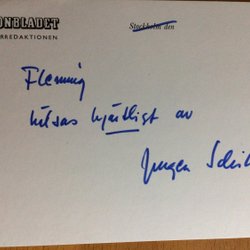 ONBLADET
RREDAKTIONEN
Stockholm den
Flemming
hälsas hjärtligt av
Jurgen Schil